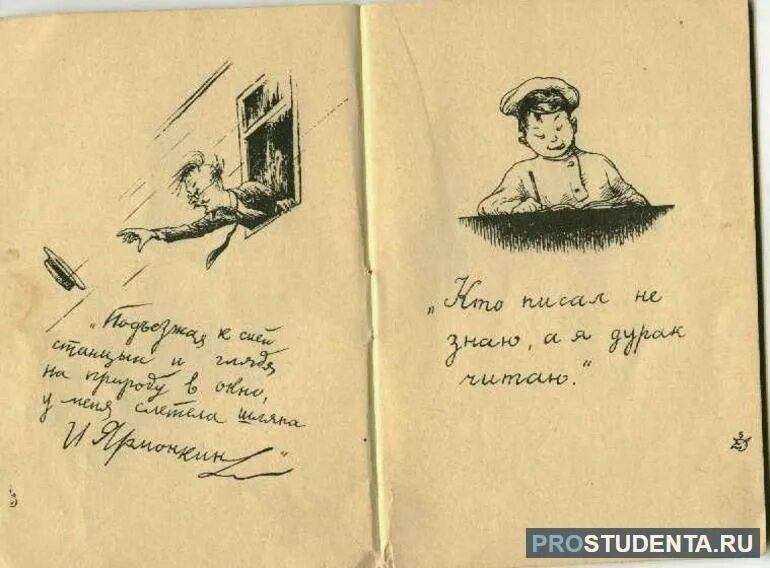 „Подъезжая к сией
станцыи и глядя
на природу в окно,
у меня слетела шляпа
И Ярмонкин"
„Кто писал не
знаю, а я дурак
читаю."
PROSTUDENTA.RU